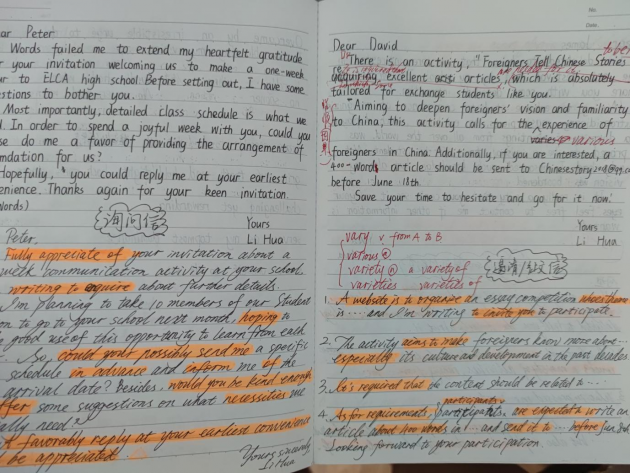 ar Peter
Words failed me to extend my heartfelt gratitude
your invitation welcoming us to make a one-week
ur to ELCA high school. Before setting out, I have some
stions to bother you.
Most importantly, detailed class schedule is what we
d. In order to spend a joyful week with you, could you
se do me a favor of providing the arrangement of
mdation for us?
Hopefully, you could reply me at your earliest
enience. Thanks again for your keen invitation.
words)
Yours
Li Hua
询问信
Peter,
Fully appreciate of your invitation about a
week communication activity at your school,
writing to equire about further details.
I'm planning to take 10 members of our Student
on to go to your school next month, hoping to
a good use of this opportunity to learn from each
So, could you possibly send me a specific
schedule in advance and inform me of the
arrival date? Besides, would you be kind enough
ffer some suggestions on what necessities we
ally need?
A favorably reply at your earliest convenience
be appreciated.
Yours sincerely
Li Hua
No.
Date.
Dear David
There is an activity, "Foreigners Tell Chinese Stories
to be
acquiring excellent articles, which is absolutely
tailored for exchange students like you.
Aiming to deepen foreigners' vision and familiarity
to China, this activity calls for the experience of
varies various
foreigners in China. Additionally, if you are interested, a
400-words article should be sent to Chinesestory
before June 18th.
Save your time to hesitate and go for it now!
Yours
Li Hua
vary v from A to B
various
variety n a variety of
varieties varieties of
1. A website is to organize an essay competition whose theme
is ... and I'm writing to invite you to participate.
2. The activity aims to make foreigners know more about...
especially its culture and development in the past decades
3. It's required that the content should be related to ...
participants
4. As for requirements, participants are expected to write an
article about 400 words in ... and send it to ... before Jun
Looking forward to your participation